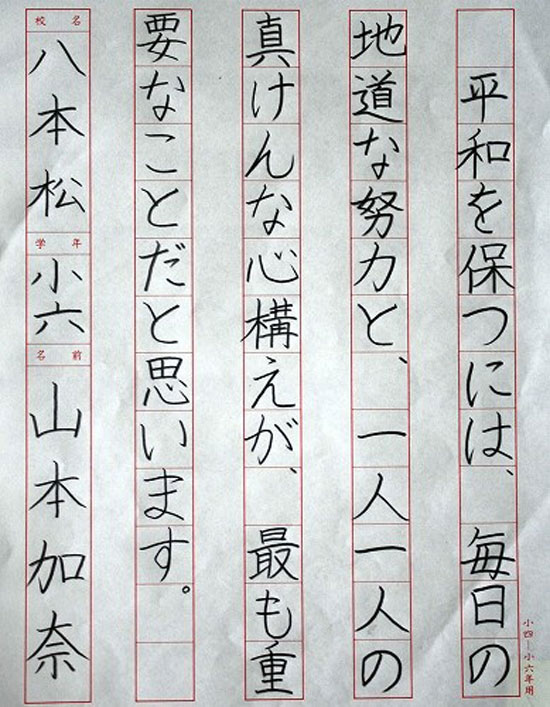 平和を保つには、毎日の
地道な努力と、一人一人の
真けんな心構えが、最も重
要なことだと思います。
校名
八本松
学年
小六
名前
山本加奈
小四―小六年用